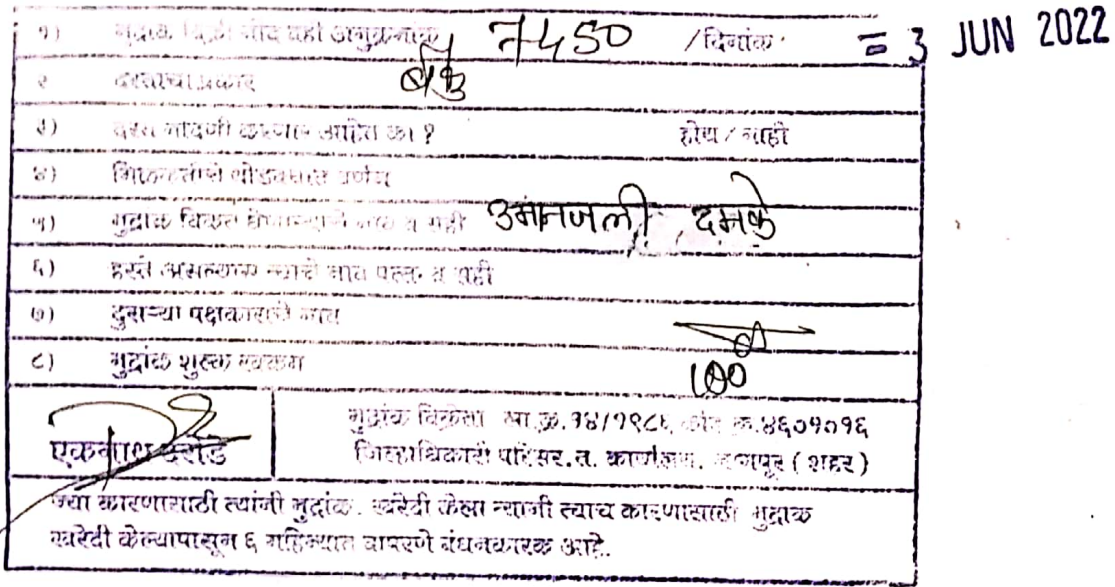 १) मुद्रांक विक्री नोंद वही अनुक्रमांक 7450 /दिनांक = 3 JUN 2022
२ दस्ताचा प्रकार
३) दस्त नोंदणी करणार आहेत का ? होय / नाही
४) मिळकतीचे थोडक्यात वर्णन
५) मुद्रांक विकत घेणाऱ्याचे नाव व सही
६) हस्ते असल्यास त्याचे नाव पत्ता व सही
७) दुसऱ्या पक्षकाराचे नाव
८) मुद्रांक शुल्क रक्कम 100
एकनाथ
मुद्रांक विक्रेता
जिल्हाधिकारी परिसर. नागपूर ( शहर )
ज्या कारणासाठी त्यांनी मुद्रांक. खरेदी केला त्यांनी त्याच कारणासाठी मुद्रांक
खरेदी केल्यापासून ६ महिन्यात वापरणे बंधनकारक आहे.